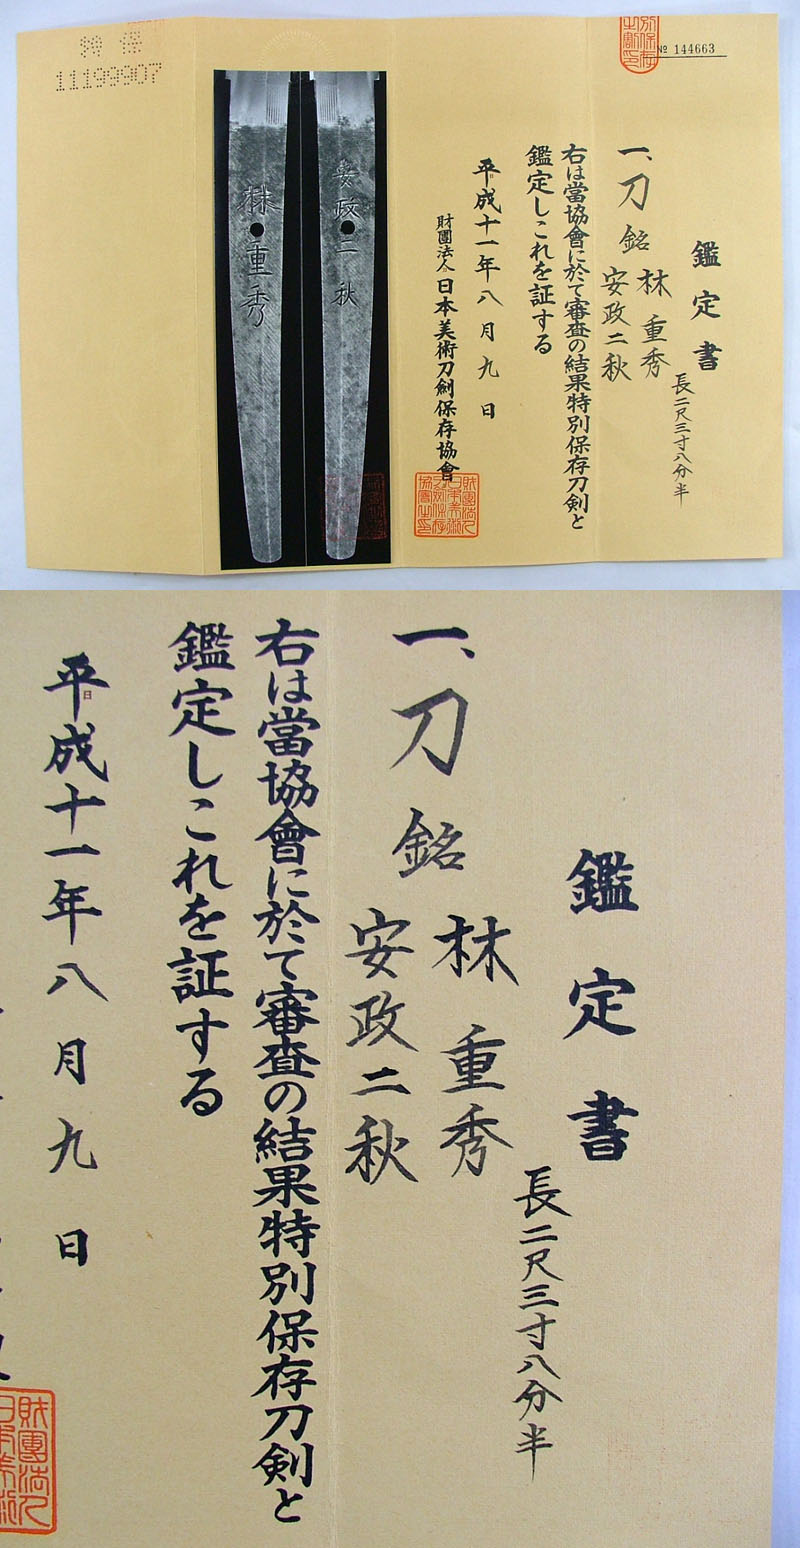 特保
11199907
林重秀
安政二秋
別保存
№ 144663
鑑定書
長二尺三寸八分半
一、刀 銘 林重秀
安政二秋
右は當協會に於て審査の結果特別保存刀剣と
鑑定しこれを証する
平成十一年八月九日
財團法人日本美術刀劍保存協會
鑑定書
長二尺三寸八分半
一、刀 銘 林重秀
安政二秋
右は當協會に於て審査の結果特別保存刀剣と
鑑定しこれを証する
平成十一年八月九日